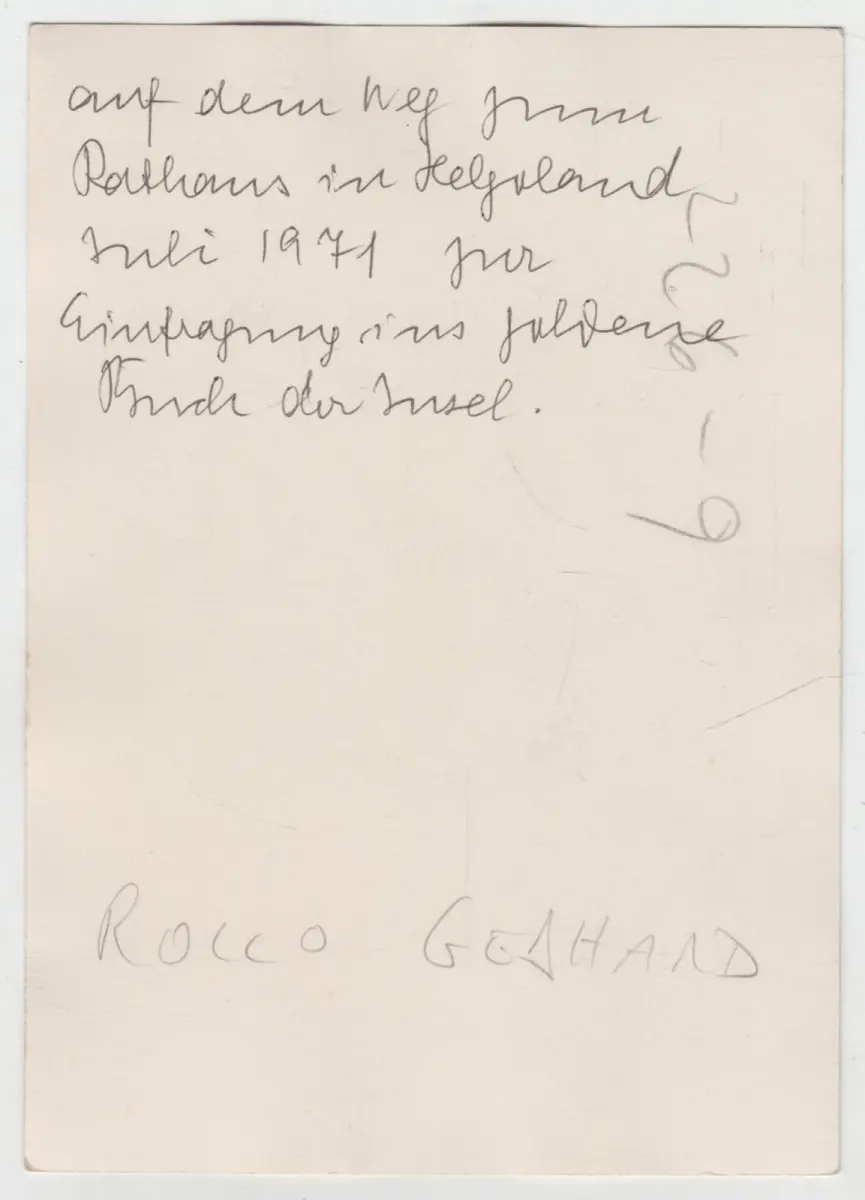 auf dem Weg zum
Rathaus in Helgoland
Juli 1971 zur
Eintragung ins goldene
Buch der Insel.
ROCCO GEBHARD